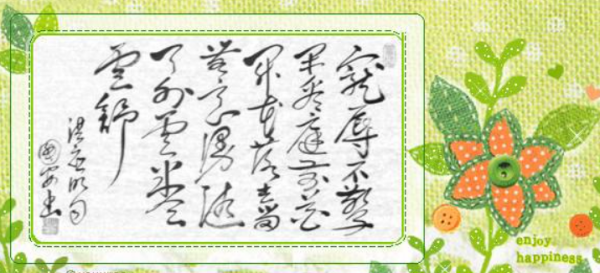 寵辱不驚
閒看庭前花
開花落去留
無意漫隨
天外雲卷
雲舒
洪应明句
enjoy
happiness